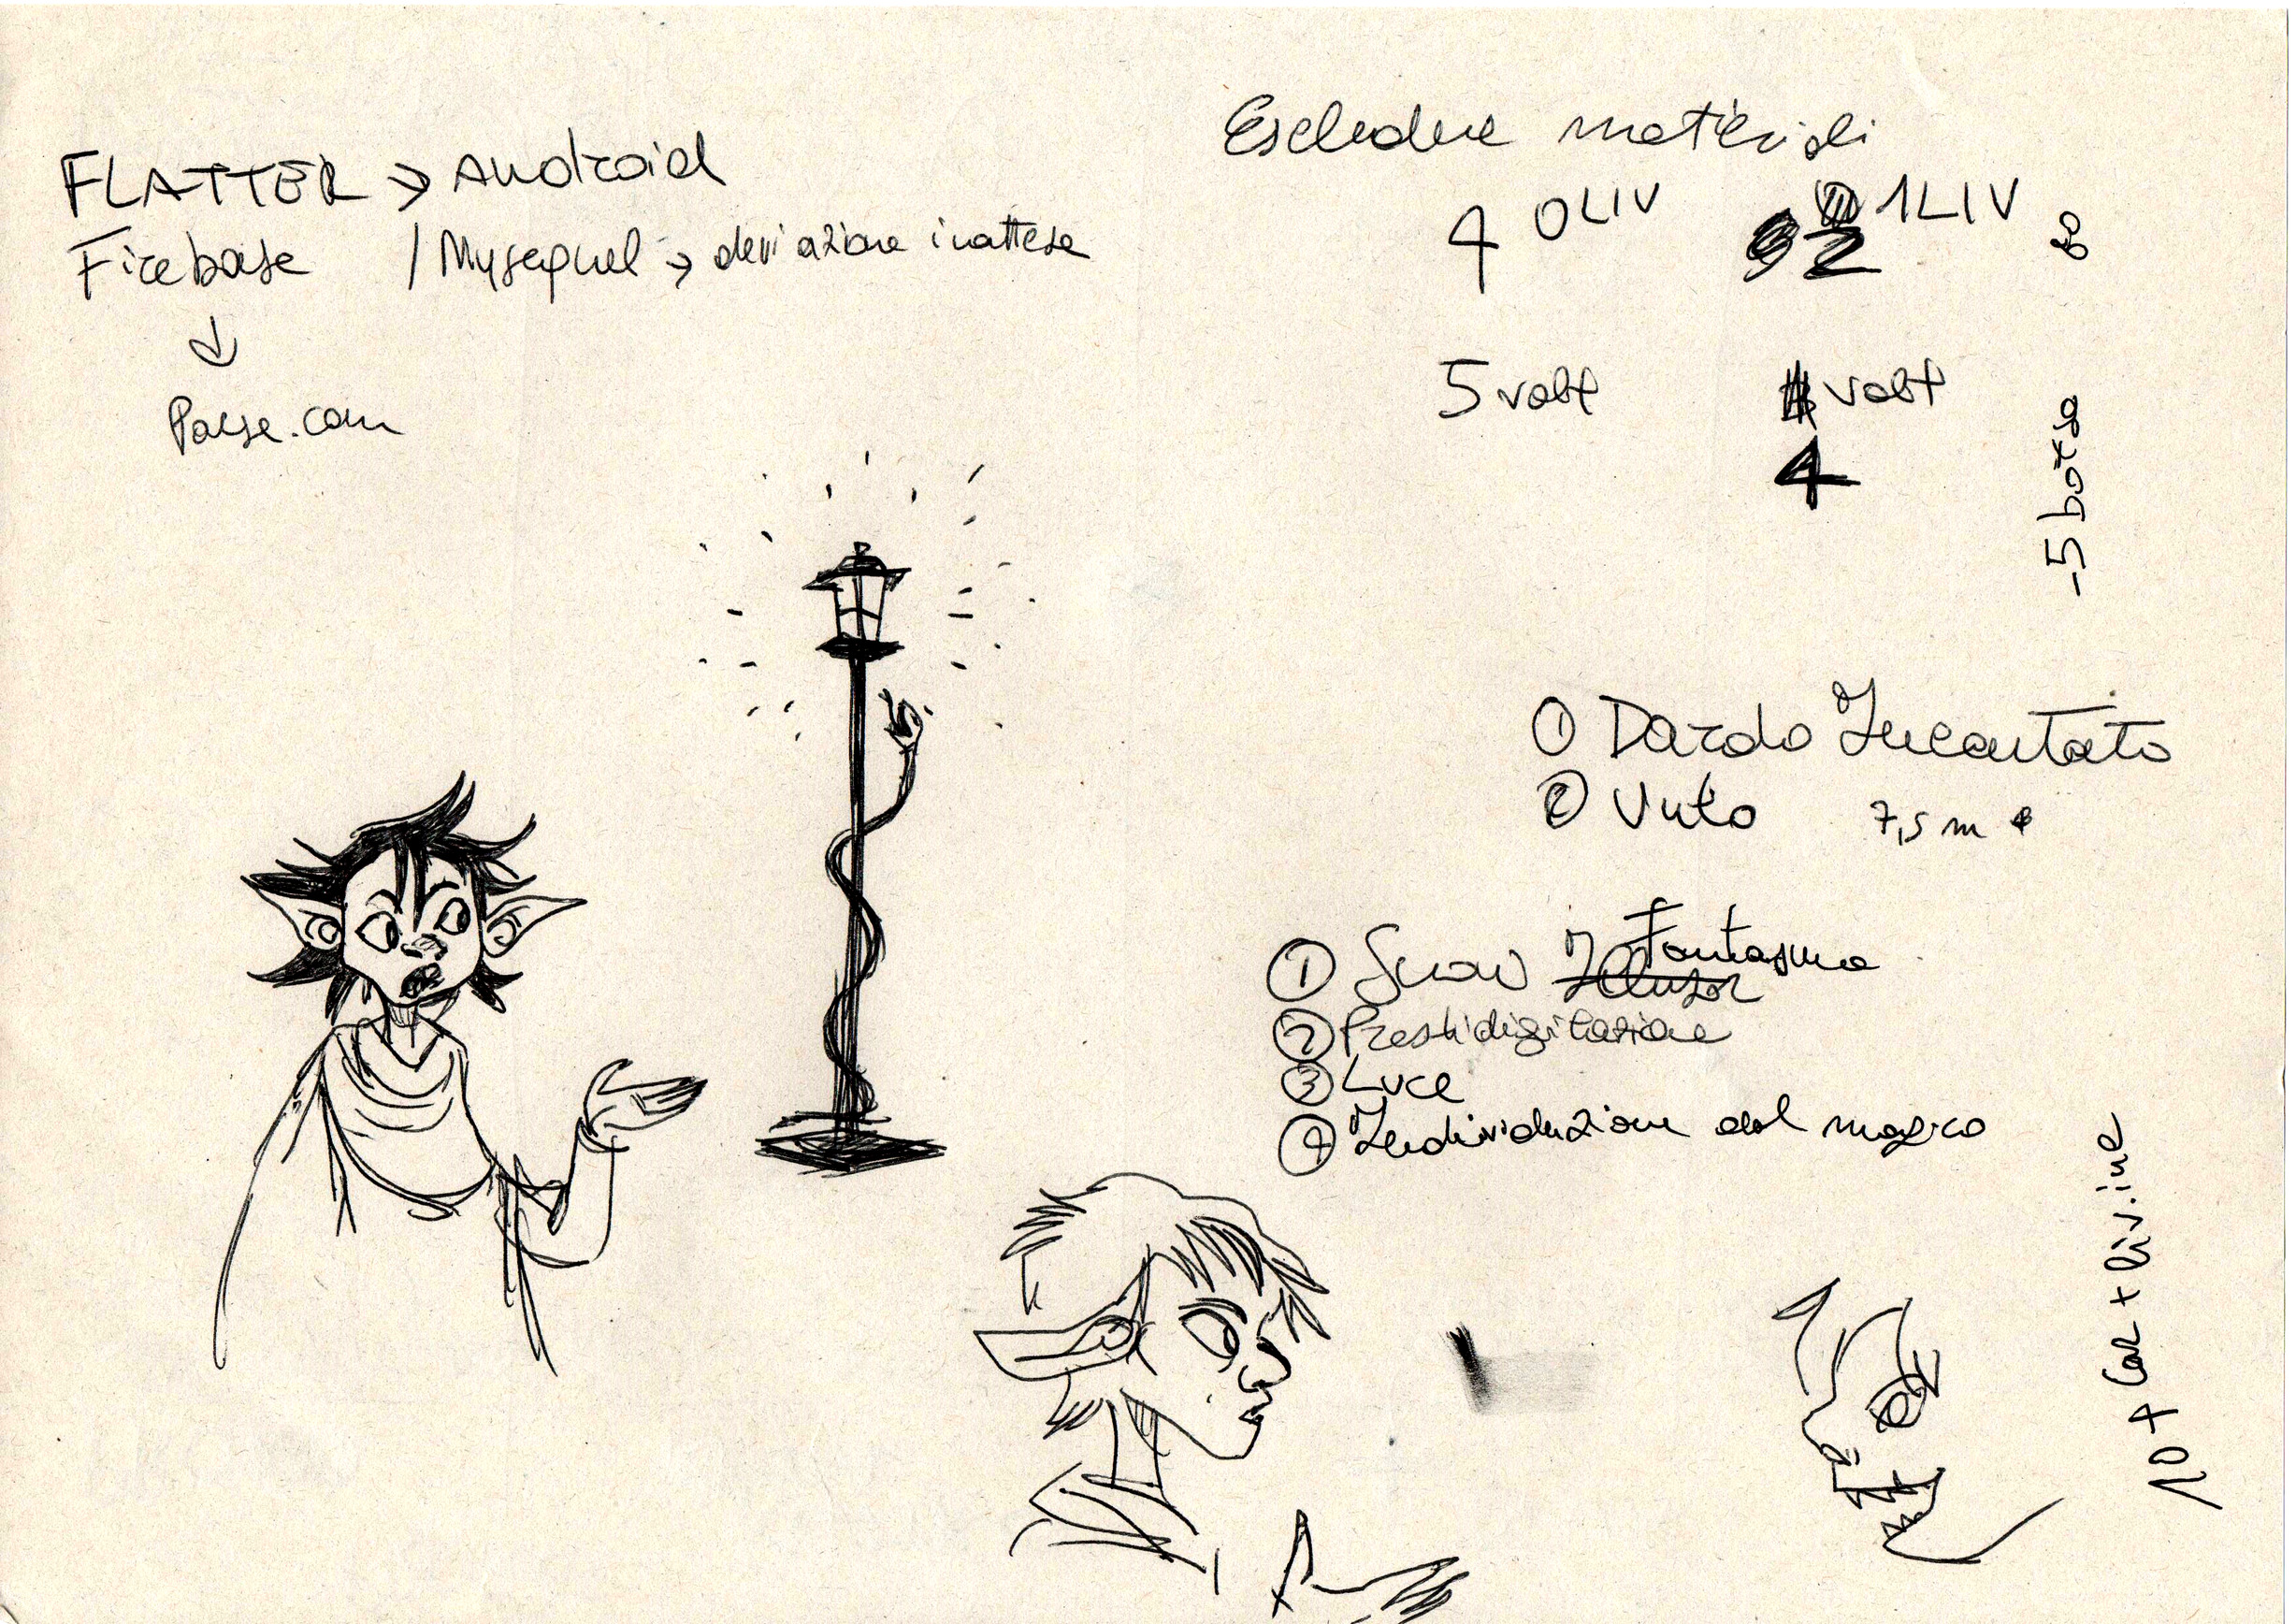 FLATTER → Android
Firebase / Mysequel → deviazione inattesa
↓
Parse.com
Escludere materiali
4 0LIV 2 1LIV
5 volt volt
4
-5 borsa
① Dardo Incantato
② Vuto 7,5 m
① Suono Fantasma
② Prestidigitazione
③ Luce
④ Individuazione del magico
10 + Car + liv.inc